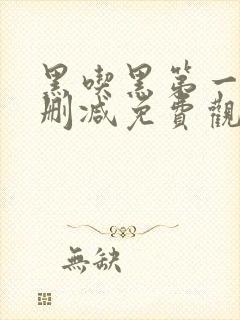 黑喫黑第一
刪減免費觀
無缺